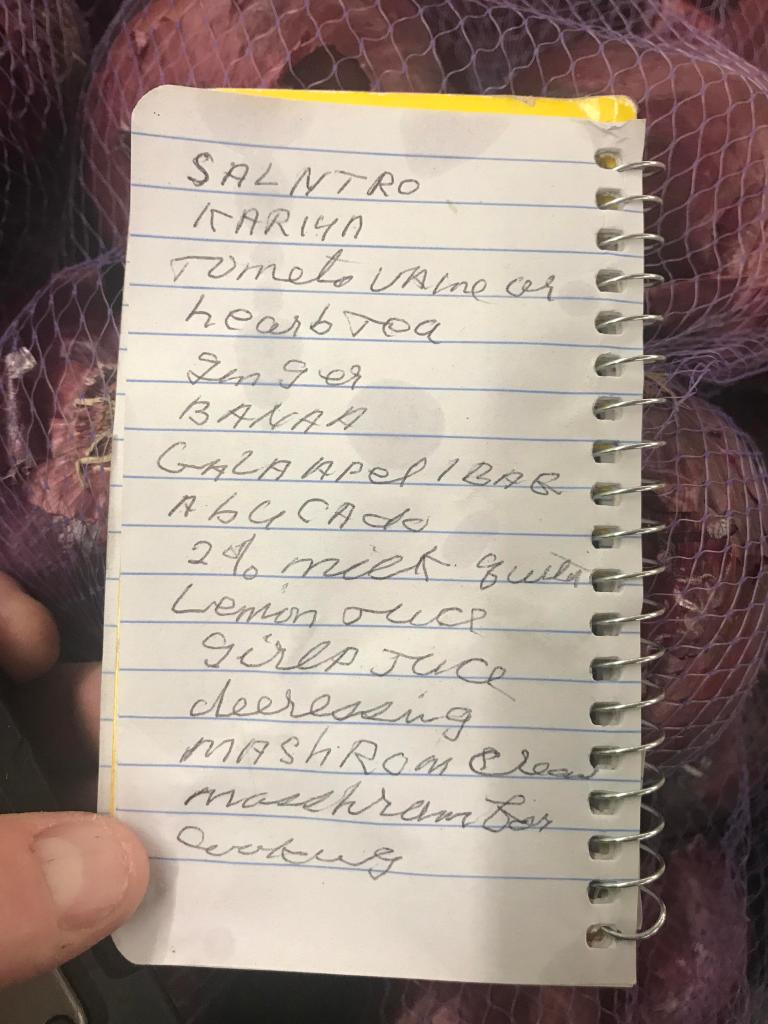 SALNTRO
KARIYA
TOmeto VAine or
hearb Tea
ginger
BANAA
GALA APel 1 BAG
AbUCAdo
2% milk
Lemon Juce
girlp Juce
deeressing
MASHROM
masshram for
cooking